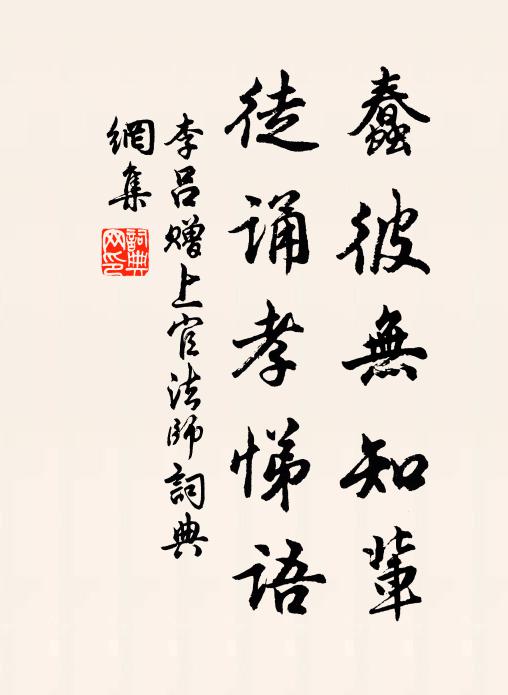 蠢彼無知輩
徒誦孝悌語
李呂赠上官法師詞典
網集
詞典
网印